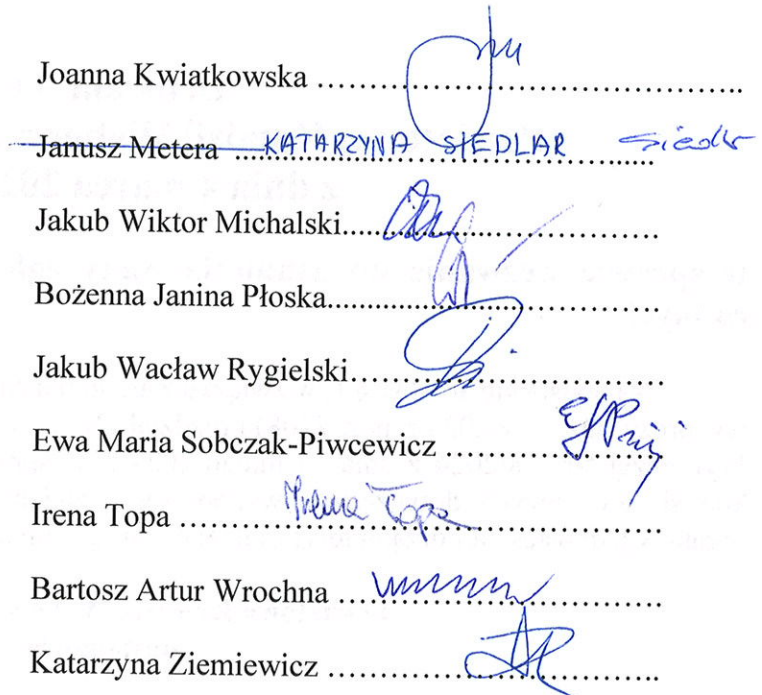 Joanna Kwiatkowska ........................................................
Janusz Metera ........ KATARZYNA SIEDLAR Siedlar
Jakub Wiktor Michalski........................................
Bożenna Janina Płoska..........................................
Jakub Wacław Rygielski.......................................
Ewa Maria Sobczak-Piwcewicz ...........................
Irena Topa ............ Irena Topa ............
Bartosz Artur Wrochna .........................................
Katarzyna Ziemiewicz ..........................................